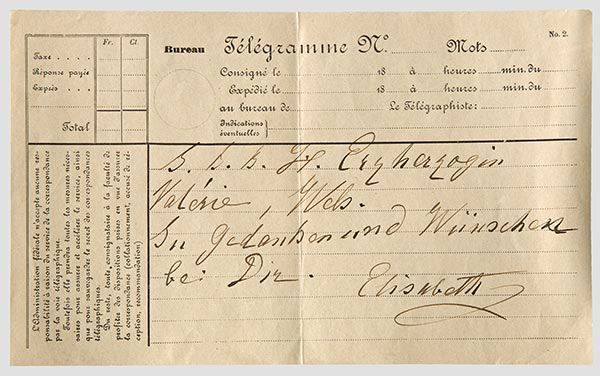 No. 2.
Fr. Ct.
Taxe . . . .
Réponse payée
Exprès . . . .
Total
Bureau Télégramme No. Mots
Consigné le 18 à heures min. du
Expédié le 18 à heures min. du
au bureau de Le Télégraphiste:
Indications
éventuelles
L'Administration fédérale n'accepte aucune res-
ponsabilité à raison du service de la correspondance
par la voie télégraphique.
Toutefois elle prendra toutes les mesures néces-
saires pour assurer et accélérer le service, ainsi
que pour sauvegarder le secret des correspondances
télégraphiques.
Du reste, toute consignataire a la faculté de
profiter des dispositions prises en vue d'assurer
la correspondance (collationnement, accusé de ré-
ception, recommandation)
H. Erzherzogin
Valérie, Wels.
In Gedanken und Wünschen
bei Dir. Elisabeth